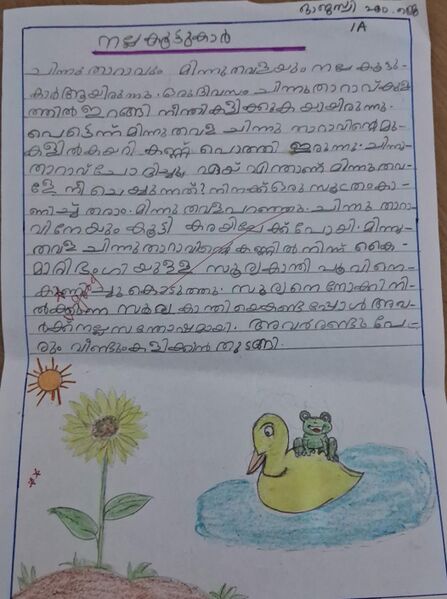 1A
നല്ല കൂട്ടുകാർ
ചിന്നു താറാവും മിന്നു തവളയും നല്ല കൂട്ടു-
കാർ ആയിരുന്നു. ഒരു ദിവസം ചിന്നു താറാവ് കുള
ത്തിൽ ഇറങ്ങി നീന്തി കളിക്കുക യായിരുന്നു.
പെട്ടെന്ന് മിന്നു തവള ചിന്നു താറാവിന്റെ മു-
കളിൽ കയറി കണ്ണ് പൊത്തി ഇരുന്നു. ചിന്നു
താറാവ് ചോദിച്ചു ഏയ് എന്താണ് മിന്നു തവ-
ളേ നീ ചെയ്യുന്നത്? നിനക്ക് ഒരു സൂത്രം കാ-
ണിച്ച് തരാം. മിന്നു തവള പറഞ്ഞു. ചിന്നു താറാ
വിനേയും കൂട്ടി കരയിലേക്ക് പോയി. മിന്നു
തവള ചിന്നു താറാവിന്റെ കണ്ണിൽ നിന്ന് കൈ
മാറ്റി ഭംഗി യുള്ള സൂര്യകാന്തി പൂവിനെ
കാണിച്ചു കൊടുത്തു. സൂര്യനെ നോക്കി നി
ൽക്കുന്ന സൂര്യ കാന്തിയെ കണ്ടപ്പോൾ അവ-
ർക്ക് നല്ല സന്തോഷമായി. അവർ രണ്ടു പേ-
രും വീണ്ടും കളിക്കാൻ തുടങ്ങി.